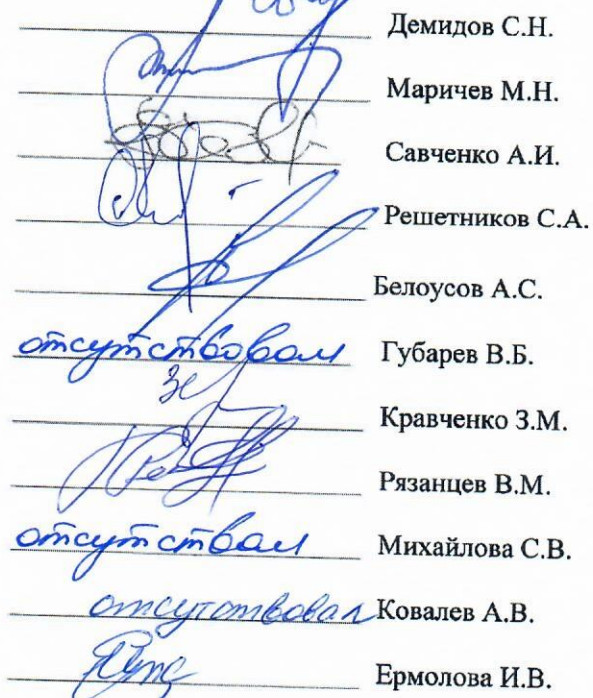 Демидов С.Н.
Маричев М.Н.
Савченко А.И.
Решетников С.А.
Белоусов А.С.
отсутствовал Губарев В.Б.
Кравченко З.М.
Рязанцев В.М.
отсутствал Михайлова С.В.
отсутствовал Ковалев А.В.
Ермолова И.В.